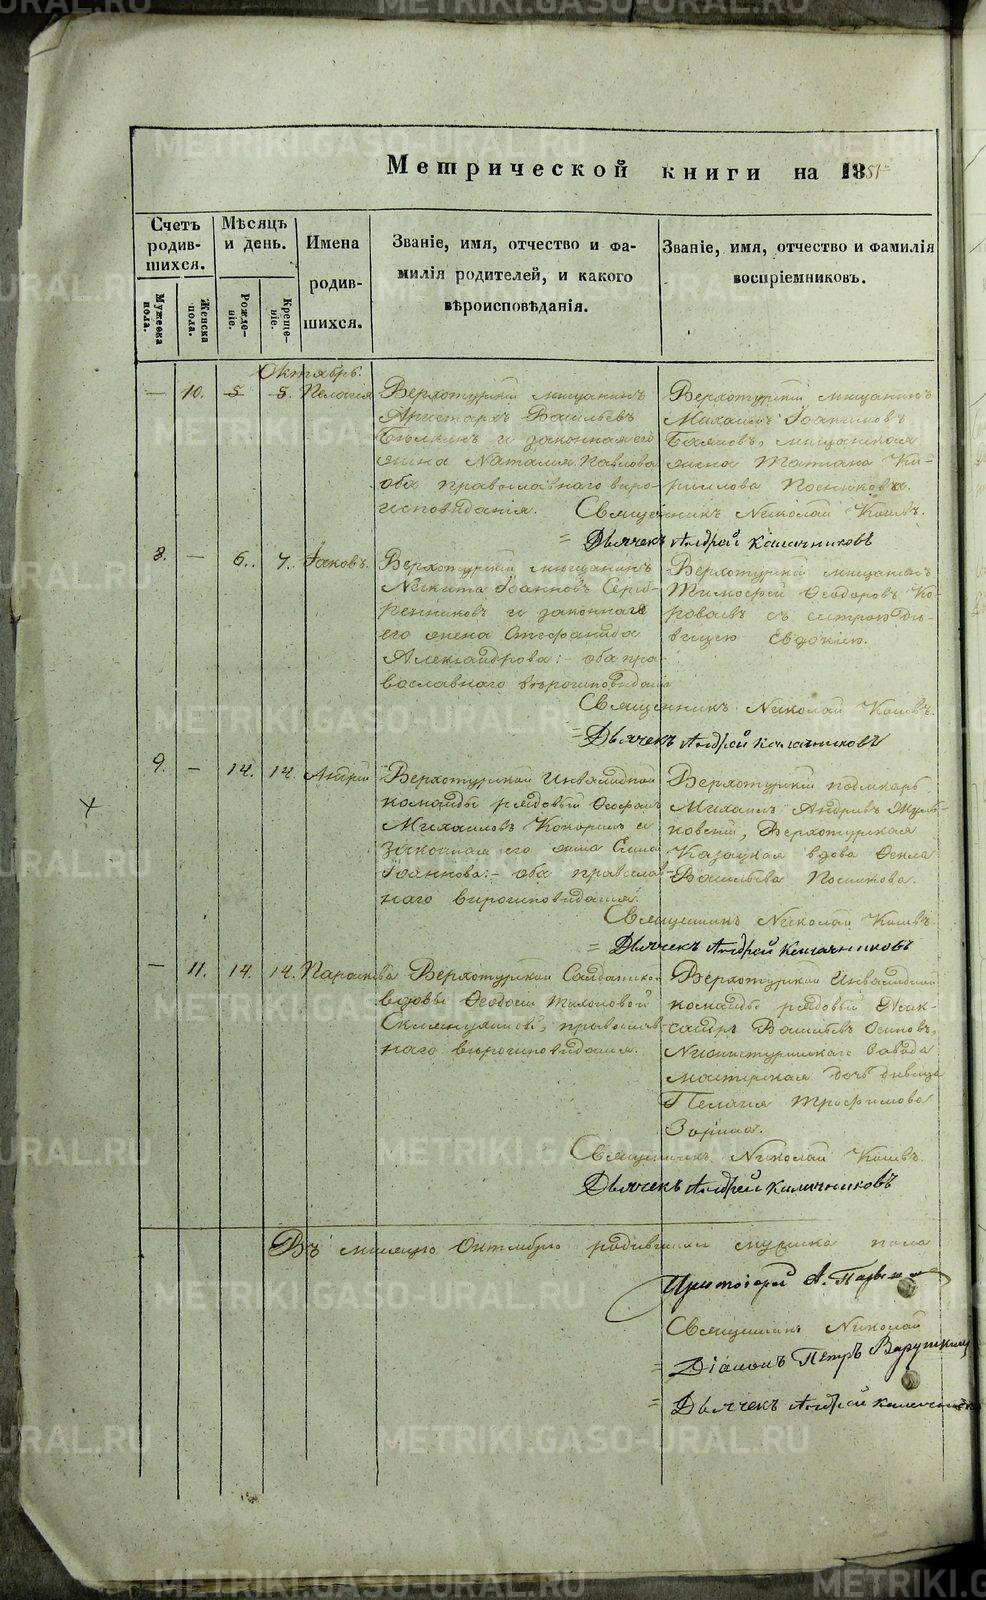 Метрической книги на 1851
Счетъ родив-шихся.
Мѣсяцъ и день.
Имена родив-шихся.
Званіе, имя, отчество и фа-
милія родителей, и какого
вѣроисповѣданія.
Званіе, имя, отчество и фамилія
воспріемниковъ.
Мужеска пола.
Женска пола.
Рожде-ніе.
Креще-ніе.
Октябрь.
— 10. 5 5. Пелагія
Верхотурскій мѣщанинъ
Аристархъ Васильевъ
и законная его
жена Наталія Павлова
оба православнаго вѣро-
исповѣданія.
Верхотурскій мѣщанинъ
Михаилъ
мѣщанская
жена Татіана Ки-
рилова Посникова.
Священникъ Николай
Дьячекъ Андрей Калачниковъ
8. — 6. 7. Іаковъ.
Верхотурскій мѣщанинъ
Никита Іоанновъ Сереб-
ренниковъ и законная
его жена Стефанида
Александрова: – оба пра-
вославнаго вѣроисповѣданія
Верхотурскій мѣщанинъ
Тимофей Ѳеодоровъ Ко-
роваевъ съ сестрою дѣ-
вицею Евдокіею.
Священникъ Николай
= Дьячекъ Андрей Калачниковъ
9. – 14. 14. Андрей
Верхотурской Инвалидной
команды рядовый Ѳеофанъ
Михаиловъ Кокоринъ и
законная его жена Елена
Іоаннова: – оба православ-
наго вѣроисповѣданія.
Верхотурскій подлекарь
Михаилъ Андреевъ
Верхотурская
Казацкая вдова Ѳекла
Васильева Посникова.
Священникъ Николай
= Дьячекъ Андрей Калачниковъ
— 11. 14. 14. Параскева
Верхотурской Солдатской
вдовы Ѳеодосіи Тихоновой
православ-
наго вѣроисповѣданія.
Верхотурской Инвалидной
команды рядовый Алек-
сандръ Васильевъ Осиповъ,
Нижнетуринскаго завода
мастерская дочь девица
Пелагія Трофимова
Зорина.
Священникъ Николай
Дьячекъ Андрей Калачниковъ
Въ месяцѣ Октябрѣ родившихся мужеска пола
Протоіерей А.
Священникъ Николай
= Діаконъ Петръ
= Дьячекъ Андрей Калачниковъ
METRIKI.GASO-URAL.RU